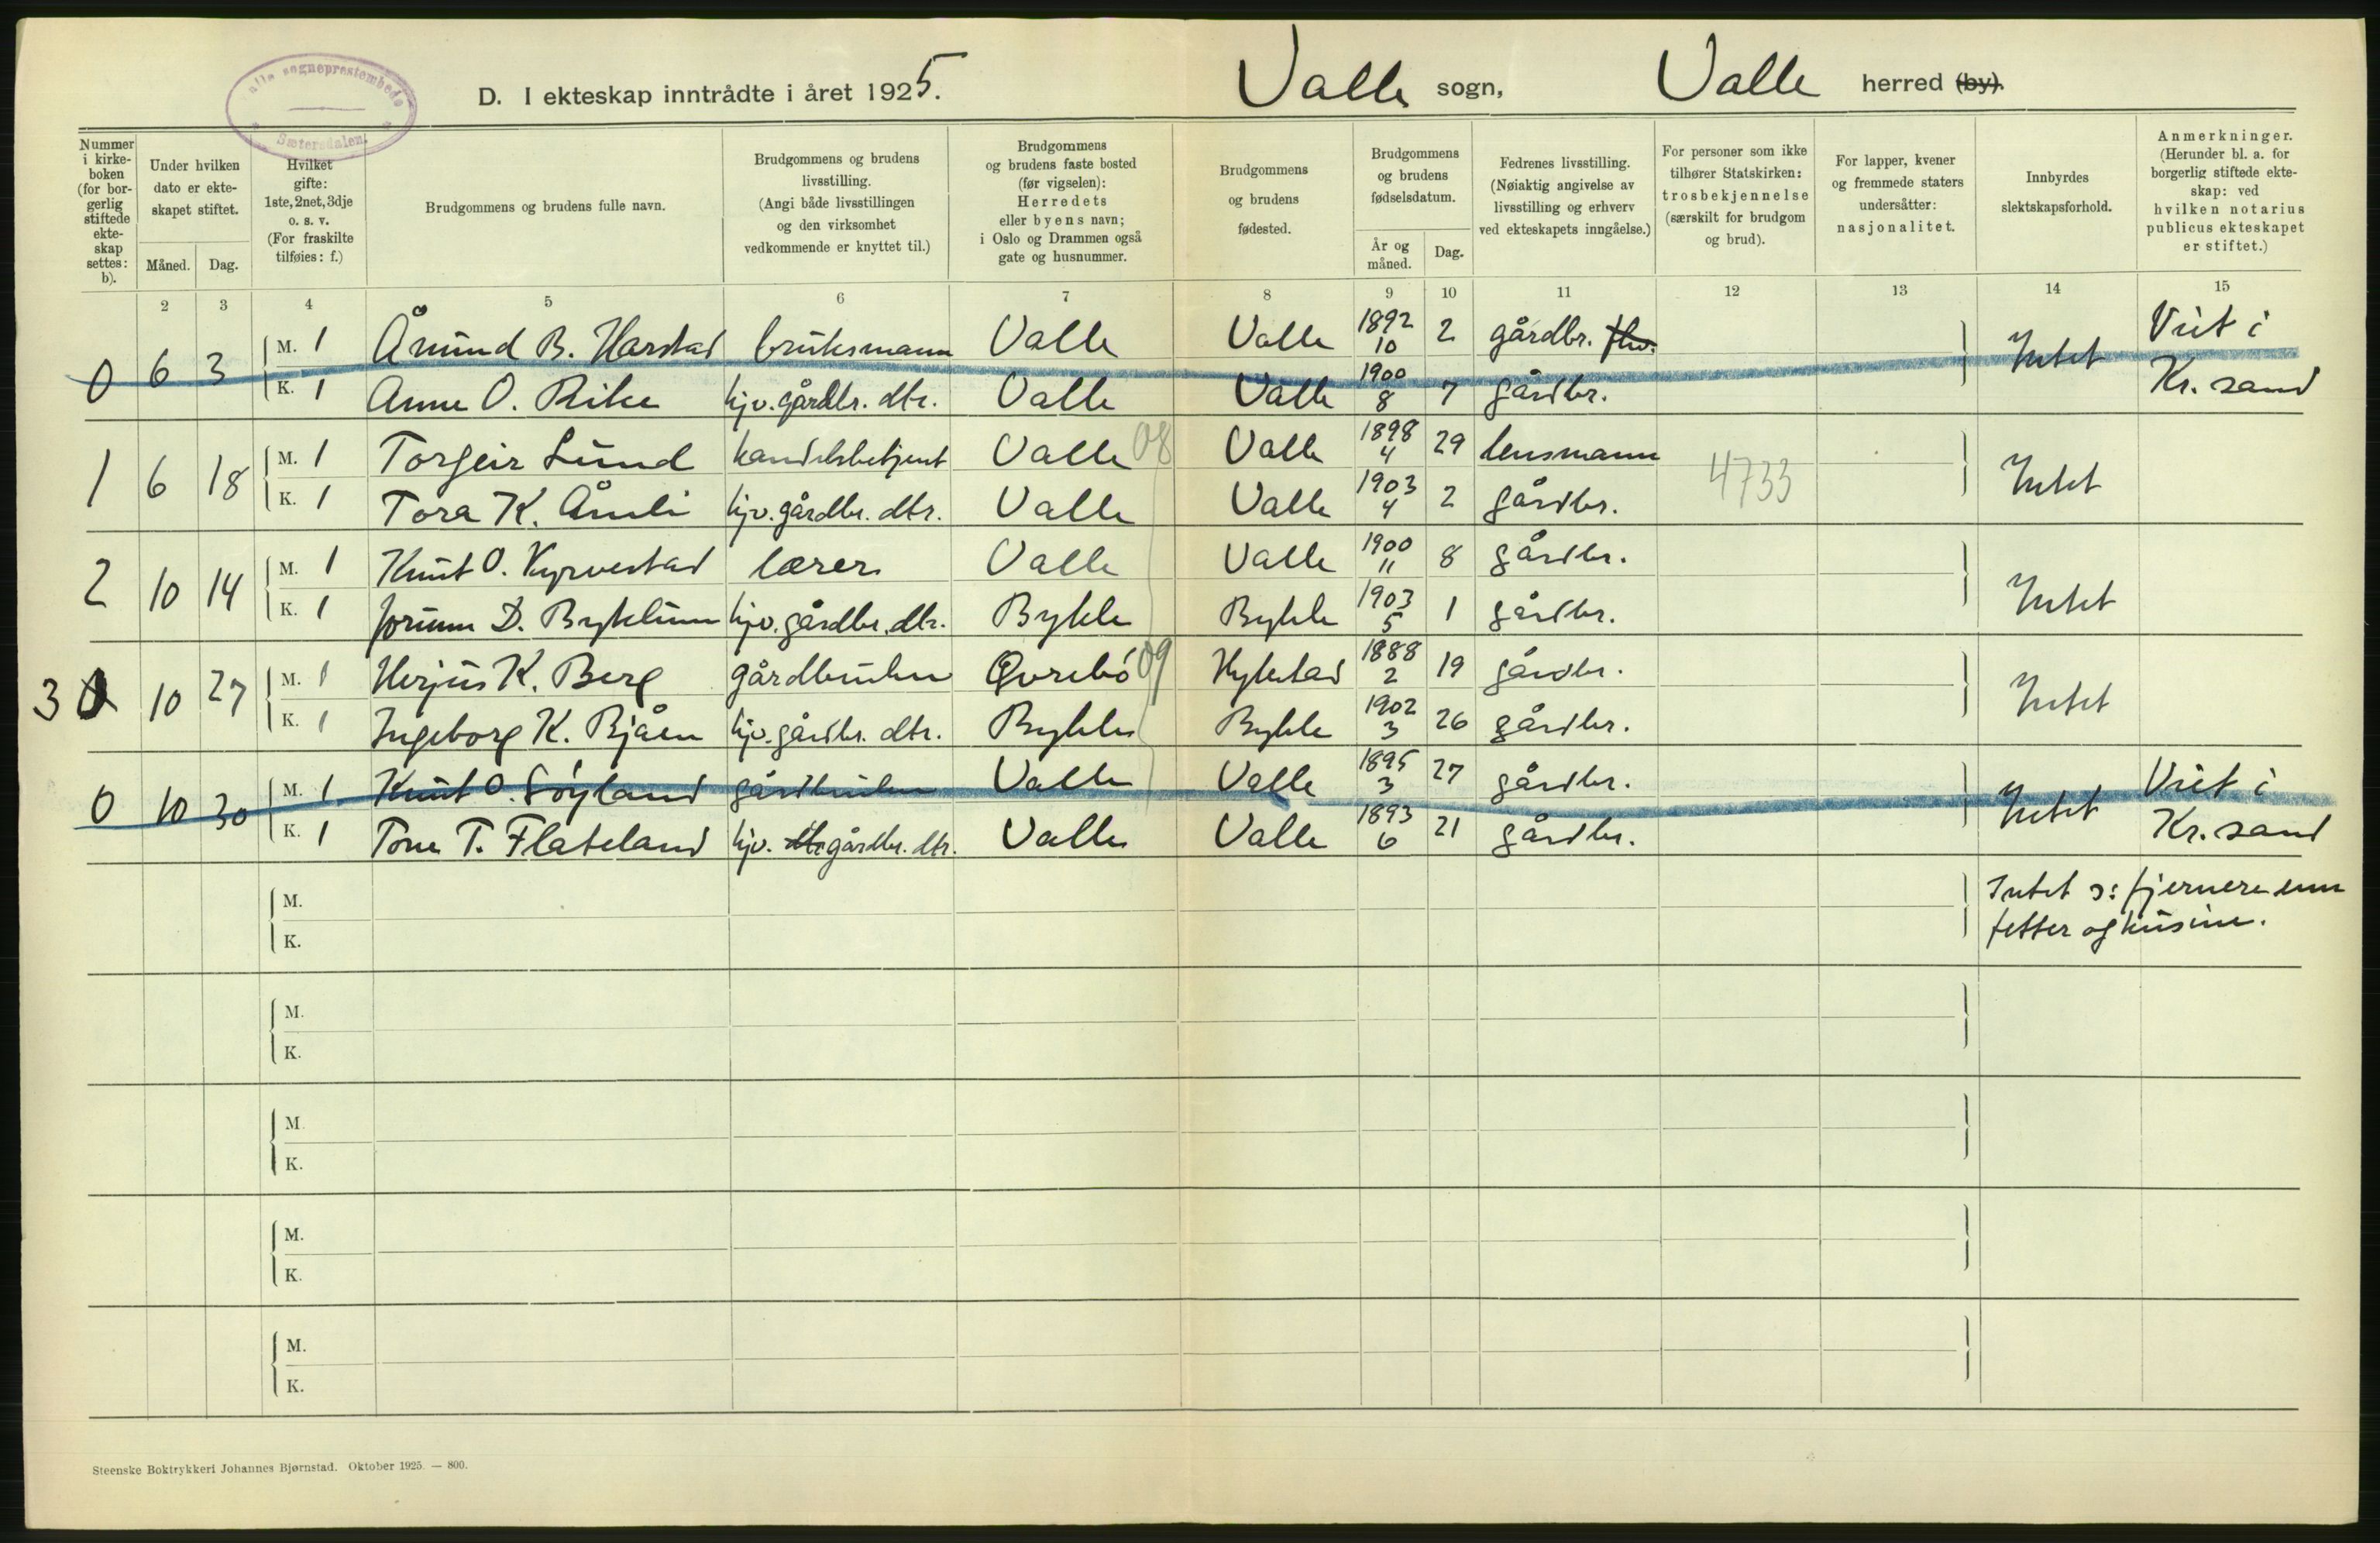 alle sogneprestembede
Sætersdalen.
D. I ekteskap inntrådte i året 1925. Valle sogn, Valle herred (by).
Nummer i kirke- boken (for bor- gerlig stiftede ekte- skap settes: b).
Under hvilken dato er ekte- skapet stiftet.
Måned. Dag.
Hvilket gifte: 1ste, 2net, 3dje o. s. v. (For fraskilte tilføies: f.)
Brudgommens og brudens fulle navn.
Brudgommens og brudens livsstilling. (Angi både livsstillingen og den virksomhet vedkommende er knyttet til.)
Brudgommens og brudens faste bosted (før vigselen): Herredets eller byens navn; i Oslo og Drammen også gate og husnummer.
Brudgommens og brudens fødested.
Brudgommens og brudens fødselsdatum.
År og måned. Dag.
Fedrenes livsstilling. (Nøiaktig angivelse av livsstilling og erhverv ved ekteskapets inngåelse.)
For personer som ikke tilhører Statskirken: trosbekjennelse (særskilt for brudgom og brud).
For lapper, kvener og fremmede staters undersåtter: nasjonalitet.
Innbyrdes slektskapsforhold.
Anmerkninger. (Herunder bl. a. for borgerlig stiftede ekte- skap: ved hvilken notarius publicus ekteskapet er stiftet.)
2 3 4 5 6 7 8 9 10 11 12 13 14 15
0 6 3 M. 1 Åmund B. Harstad bruksmann Valle Valle 1892 10 2 gårdbr. Intet Viet i
K. 1 Anne O. Rike hjv. gårdbr. dtr. Valle Valle 1900 8 7 gårdbr. Kr. sand
1 6 18 M. 1 Torgeir Lund handelsbetjent Valle 08 Valle 1898 4 29 lensmann 4733 Intet
K. 1 Tora K. Åmli hjv. gårdbr. dtr. Valle Valle 1903 4 2 gårdbr.
2 10 14 M. 1 Knut O. Kyrvestad lærer Valle Valle 1900 11 8 gårdbr. Intet
K. 1 Jorunn D. Byklum hjv. gårdbr. dtr. Bykle Bykle 1903 5 1 gårdbr.
3 10 27 M. 1 Herjus K. Berg gårdbruker Øvrebö 09 Hylestad 1888 2 19 gårdbr. Intet
K. 1 Ingeborg K. Bjåen hjv. gårdbr. dtr. Bykle Bykle 1902 3 26 gårdbr.
0 10 30 M. 1 Knut O. Löyland gårdbruker Valle Valle 1895 3 27 gårdbr. Intet Viet i
K. 1 Tone T. Flateland hjv. dtr gårdbr. dtr. Valle Valle 1893 6 21 gårdbr. Kr. sand
M. Intet ɔ: fjernere enn
K. fetter og kusine.
M.
K.
M.
K.
M.
K.
M.
K.
Steenske Boktrykkeri Johannes Bjørnstad. Oktober 1925. — 800.